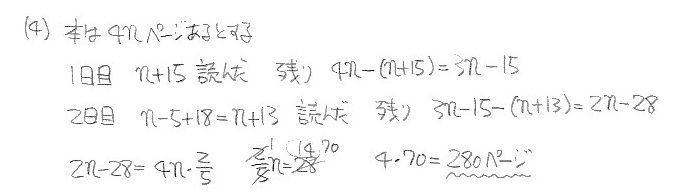 (4) 本は4nページあるとする
1日目 n+15 読んだ 残り 4n-(n+15)=3n-15
2日目 n-5+18=n+13 読んだ 残り 3n-15-(n+13)=2n-28
2n-28=4n・2/5 2/5n=28 1 14 70 4・70=280ページ